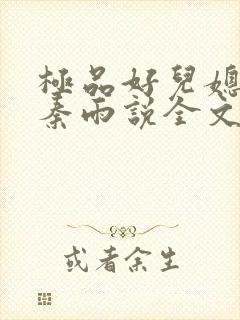 極品好兒媳
秦雨説全文
或者余生